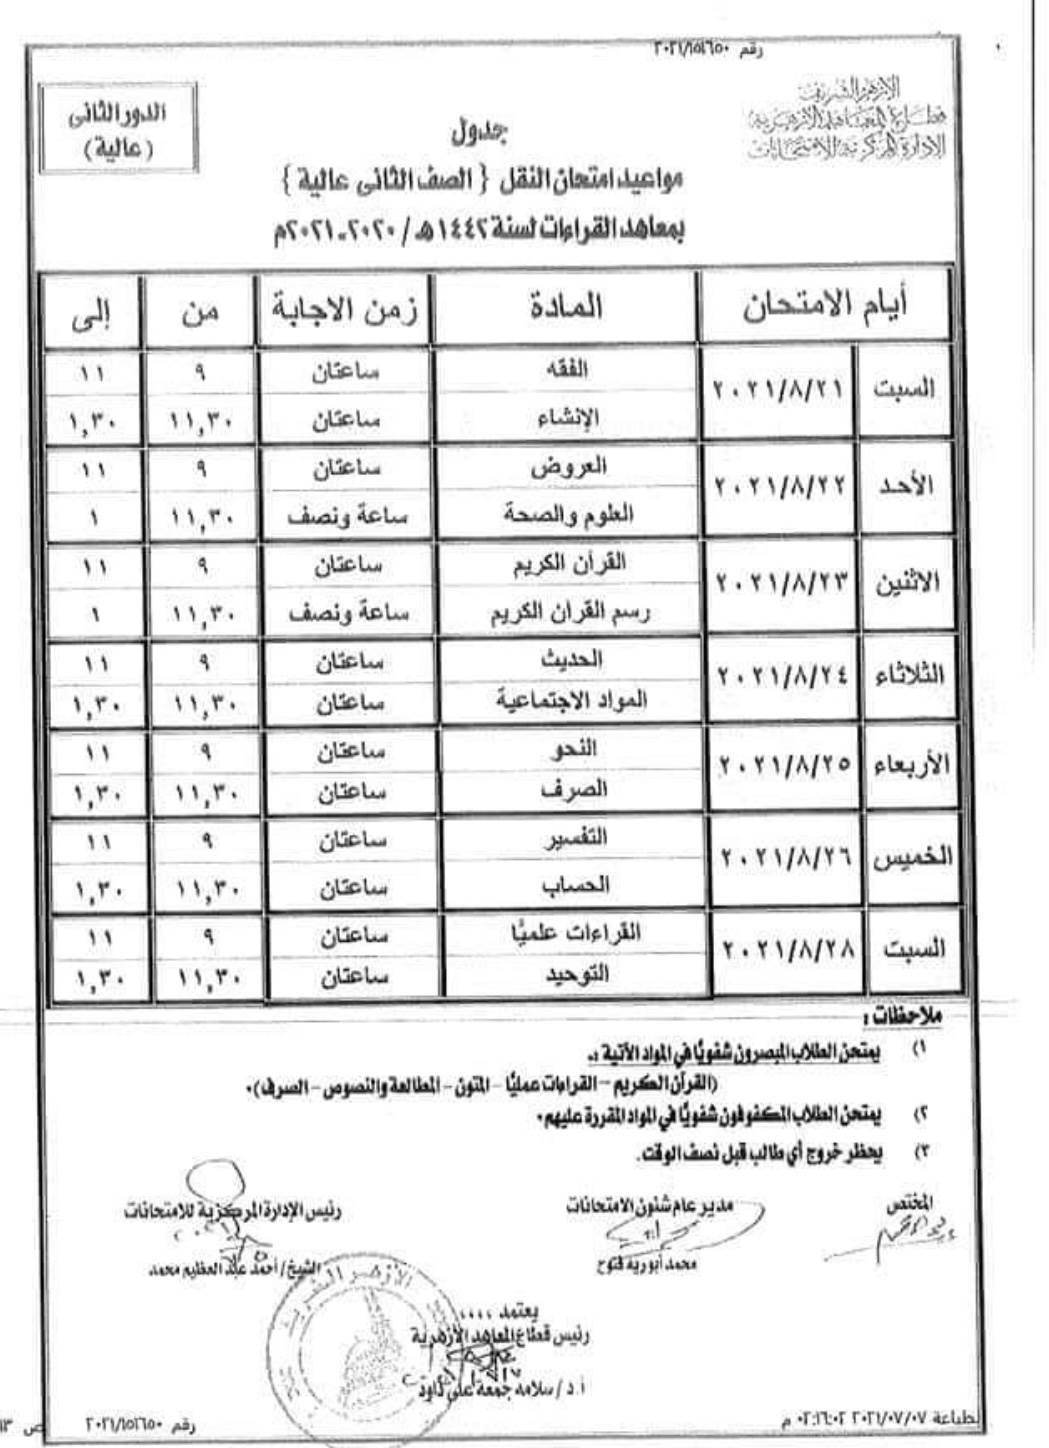 رقم ٢٠٢١/١٥١٦٥٠
الأزهر الشريف
قطاع المعاهد الأزهرية
الإدارة المركزية للامتحانات
الدور الثانى
(عالية)
جدول
مواعيد امتحان النقل { الصف الثانى عالية }
بمعاهد القراءات لسنة ١٤٤٢هـ / ٢٠٢٠-٢٠٢١م
أيام الامتحان المادة زمن الاجابة من إلى
السبت ٢٠٢١/٨/٢١ الفقه ساعتان ٩ ١١
الإنشاء ساعتان ١١,٣٠ ١,٣٠
الأحد ٢٠٢١/٨/٢٢ العروض ساعتان ٩ ١١
العلوم والصحة ساعة ونصف ١١,٣٠ ١
الاثنين ٢٠٢١/٨/٢٣ القرآن الكريم ساعتان ٩ ١١
رسم القرآن الكريم ساعة ونصف ١١,٣٠ ١
الثلاثاء ٢٠٢١/٨/٢٤ الحديث ساعتان ٩ ١١
المواد الاجتماعية ساعتان ١١,٣٠ ١,٣٠
الأربعاء ٢٠٢١/٨/٢٥ النحو ساعتان ٩ ١١
الصرف ساعتان ١١,٣٠ ١,٣٠
الخميس ٢٠٢١/٨/٢٦ التفسير ساعتان ٩ ١١
الحساب ساعتان ١١,٣٠ ١,٣٠
السبت ٢٠٢١/٨/٢٨ القراءات علميًا ساعتان ٩ ١١
التوحيد ساعتان ١١,٣٠ ١,٣٠
ملاحظات :
١) يمتحن الطلاب المبصرون شفويًا في المواد الآتية :ـ
(القرآن الكريم – القراءات عمليًا – المتون – المطالعة والنصوص – الصرف).
٢) يمتحن الطلاب المكفوفون شفويًا في المواد المقررة عليهم.
٣) يحظر خروج أي طالب قبل نصف الوقت.
المختص مدير عام شئون الامتحانات رئيس الإدارة المركزية للامتحانات
محمد أبورية فتوح الشيخ/ أحمد عبد العظيم محمد
الأزهر الشريف
يعتمد ،،،،
رئيس قطاع المعاهد الأزهرية
أ.د / سلامة جمعة على داود
طباعة ٢٠٢١/٠٧/٠٧ ٠٢:١٦:٠٢ م رقم ٢٠٢١/١٥١٦٥٠ ص ١٣